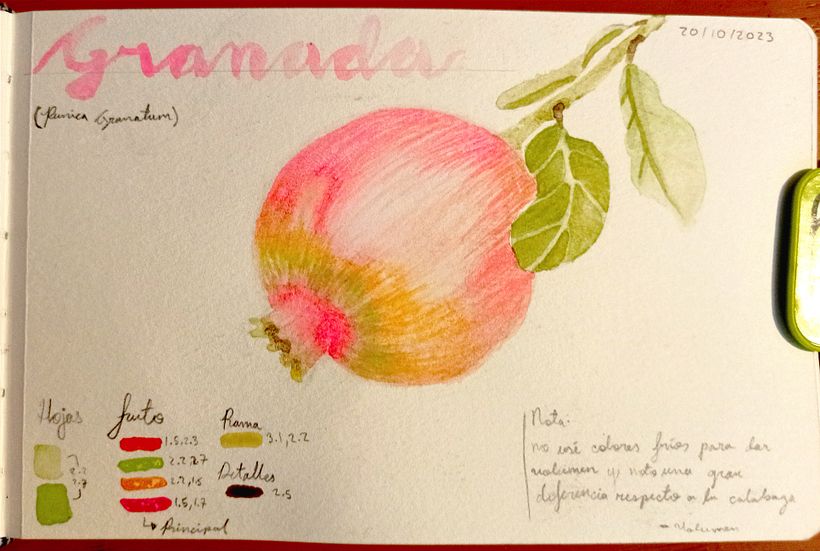 Granada
20/10/2023
(Punica Granatum)
Hojas
2.2
2.7
fruto
1.5, 2.3
2.2, 2.7
2.2, 1.5
1.5, 1.7
↳ Principal
Rama
3.1, 2.2
Detalles
2.5
Nota:
no usé colores fríos para dar
volumen y noto una gran
diferencia respecto a la calabaza
- Volumen